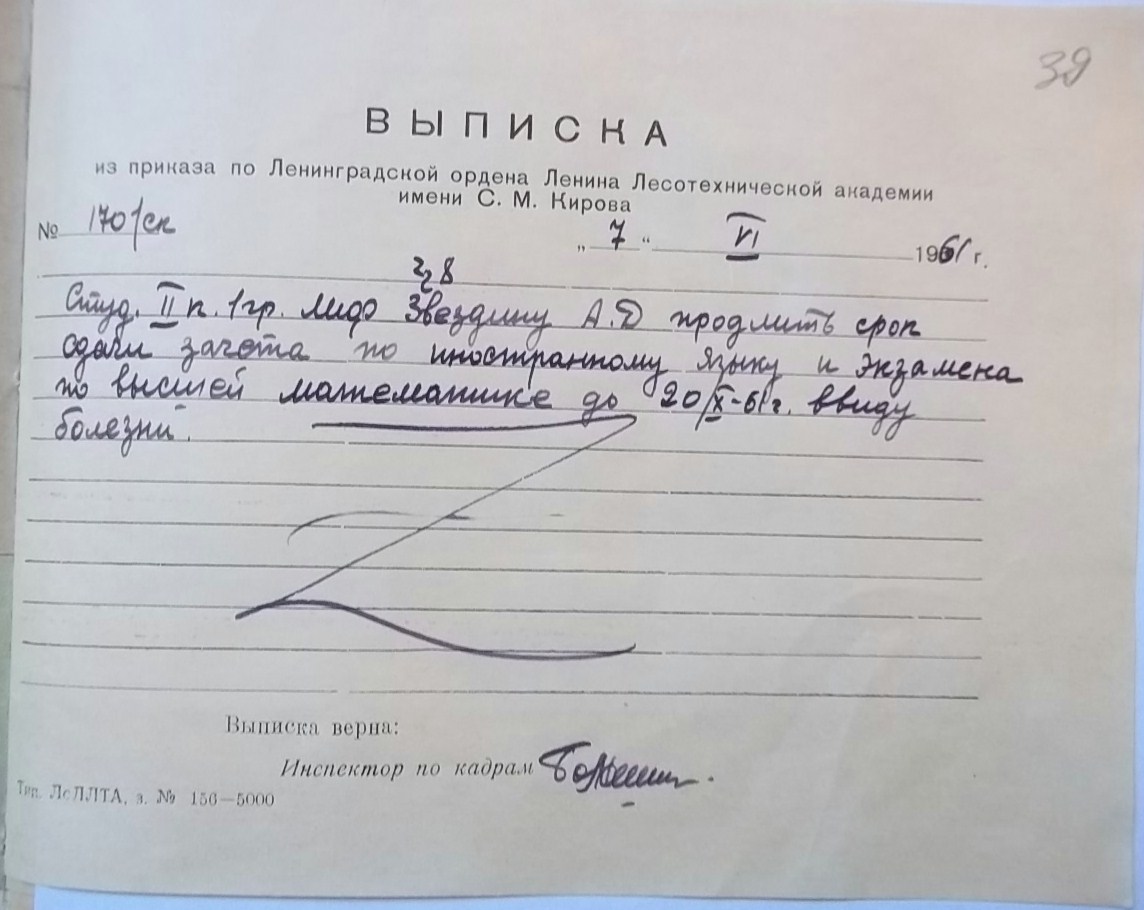 39
ВЫПИСКА
из приказа по Ленинградской ордена Ленина Лесотехнической академии
имени С. М. Кирова
№ 170/ск „ 7 “ VI 1961 г.
§ 8
Студ. II к. 1гр. Звездину А.Д продлить срок
сдачи зачета по иностранному языку и экзамена
по высшей математике до 20/X-61г. ввиду
болезни.
Выписка верна:
Инспектор по кадрам
Тип. ЛОЛЛТА, з. № 156—5000